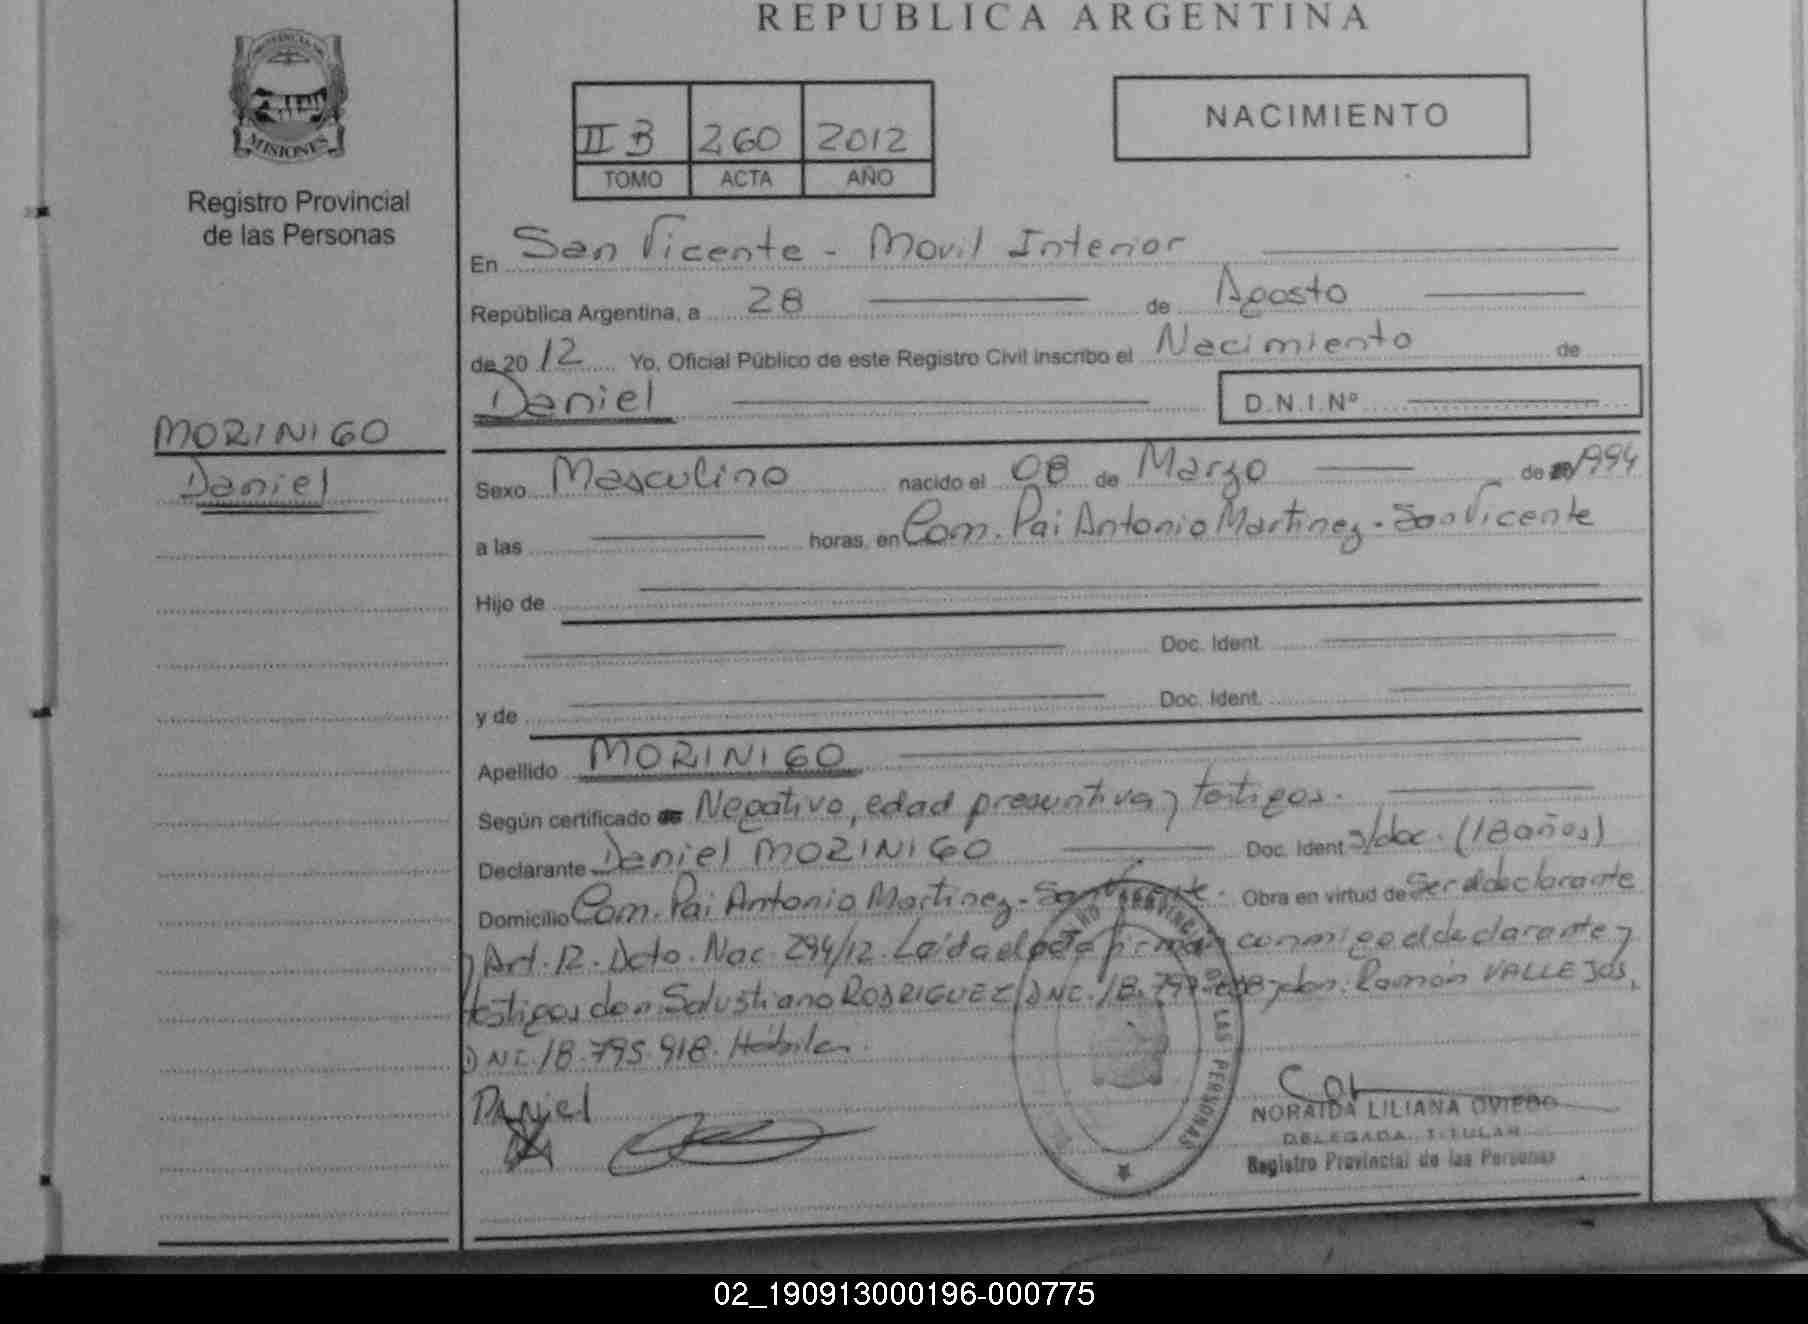 REPUBLICA ARGENTINA
PROVINCIA DE
MISIONES
Registro Provincial
de las Personas
II B 260 2012
TOMO ACTA AÑO
NACIMIENTO
En San Vicente - Movil Interior
República Argentina, a 28 de Agosto
de 2012 Yo, Oficial Público de este Registro Civil inscribo el Nacimiento de
Daniel D.N.I.Nº
MORINIGO
Daniel
Sexo Masculino nacido el 08 de Marzo de 1994
a las horas, en Com. Pai Antonio Martinez - San Vicente
Hijo de
Doc. Ident.
y de Doc. Ident.
Apellido MORINIGO
Según certificado Negativo, edad presuntiva y testigos.
Declarante Daniel MORINIGO Doc. Ident s/doc. (18 años)
Domicilio Com. Pai Antonio Martinez - San Vicente. Obra en virtud de Ser el declarante
y Art. 12. Dcto. Nac. 294/12. Leída el acta firman conmigo el declarante y
testigos don Salustiano RODRIGUEZ DNI. 18. y don: Ramón VALLEJOS,
DNI. 18.795.918. Hábiles.
DANiEl
PROVINCIAL LAS PERSONAS
NORAIDA LILIANA OVIEDO
DELEGADA TITULAR
Registro Provincial de las Personas
02_190913000196-000775